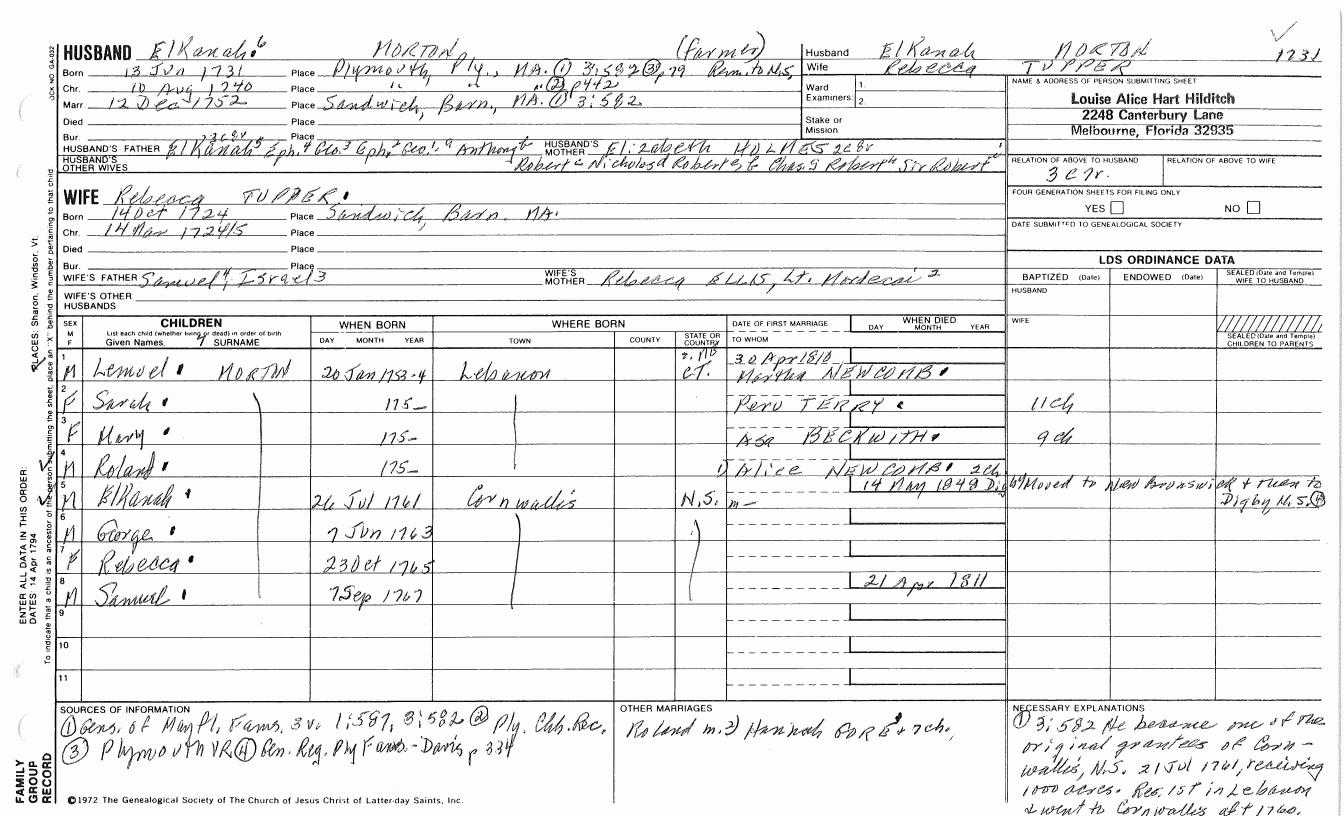 HUSBAND ElKanah 6 MORTON (Farmer)
Born 13 Jun 1731 Place Plymouth, Ply., MA. ① 3:582 ③ p79 Rem. to N.S.
Chr. 10 Aug 1740 Place " " " ② p442
Marr 12 Dec 1752 Place Sandwich, Barn, MA. ① 3:582
Died Place
Bur. Place
HUSBAND'S FATHER ElKanah 5 Eph. 4 Geo. 3 Eph. 2 Geo. 1 Anthony
HUSBAND'S MOTHER Elizabeth HOLMES 2c8r
HUSBAND'S OTHER WIVES
Robert Nicholas Robert Chas Robert Sir Robert
Husband ElKanah MORTON 1731
Wife Rebecca TUPPER
Ward 1.
Examiners: 2.
Stake or Mission
NAME & ADDRESS OF PERSON SUBMITTING SHEET
Louise Alice Hart Hilditch
2248 Canterbury Lane
Melbourne, Florida 32935
RELATION OF ABOVE TO HUSBAND RELATION OF ABOVE TO WIFE
3c7r.
FOUR GENERATION SHEETS FOR FILING ONLY
YES NO
DATE SUBMITTED TO GENEALOGICAL SOCIETY
WIFE Rebecca TUPPER
Born 14 Oct 1724 Place Sandwich, Barn. MA.
Chr. 14 Mar 1724/5 Place
Died Place
Bur. Place
WIFE'S FATHER Samuel 4, Israel 3
WIFE'S MOTHER Rebecca ELLIS, Lt. Mordecai 2
WIFE'S OTHER HUSBANDS
LDS ORDINANCE DATA
BAPTIZED (Date) ENDOWED (Date) SEALED (Date and Temple) WIFE TO HUSBAND
HUSBAND
WIFE
SEALED (Date and Temple) CHILDREN TO PARENTS
SEX M F
CHILDREN
List each child (whether living or dead) in order of birth
Given Names SURNAME
WHEN BORN
DAY MONTH YEAR
WHERE BORN
TOWN COUNTY STATE OR COUNTRY
DATE OF FIRST MARRIAGE
TO WHOM
WHEN DIED
DAY MONTH YEAR
1 M Lemuel MORTON 20 Jan 1753-4 Lebanon CT. 30 Apr 1810
Martha NEWCOMB
2 F Sarah 175– Peru TERRY 11ch
3 F Mary 175– Asa BECKWITH 9ch
4 M Roland 175– 1) Alice NEWCOMB 2ch
5 M ElKanah 26 Jul 1761 Cornwallis N.S. m— 14 May 1848 Digby Moved to New Brunswick & then to
Digby N.S. ④
6 M George 7 Jun 1763
7 F Rebecca 23 Oct 1765
8 M Samuel 7 Sep 1767 21 Apr 1811
9
10
11
SOURCES OF INFORMATION
① Gens. of May Pl. Fams. 3v. 1:587, 3:582 ② Ply. Chh. Rec.
③ Plymouth VR ④ Gen. Reg. Ply Fams.-Davis p 334
OTHER MARRIAGES
Roland m. 2) Hannah GORE + 7ch.
NECESSARY EXPLANATIONS
① 3:582 He became one of the
original grantees of Corn-
wallis, N.S. 21 Jul 1761, receiving
1000 acres. Res. 1st in Lebanon
& went to Cornwallis aft 1760.
©1972 The Genealogical Society of The Church of Jesus Christ of Latter-day Saints, Inc.
FAMILY GROUP RECORD
ENTER ALL DATA IN THIS ORDER:
DATES: 14 Apr 1794
PLACES: Sharon, Windsor, Vt.
To indicate that a child is an ancestor of the person submitting the sheet, place an "X" behind the number pertaining to that child.